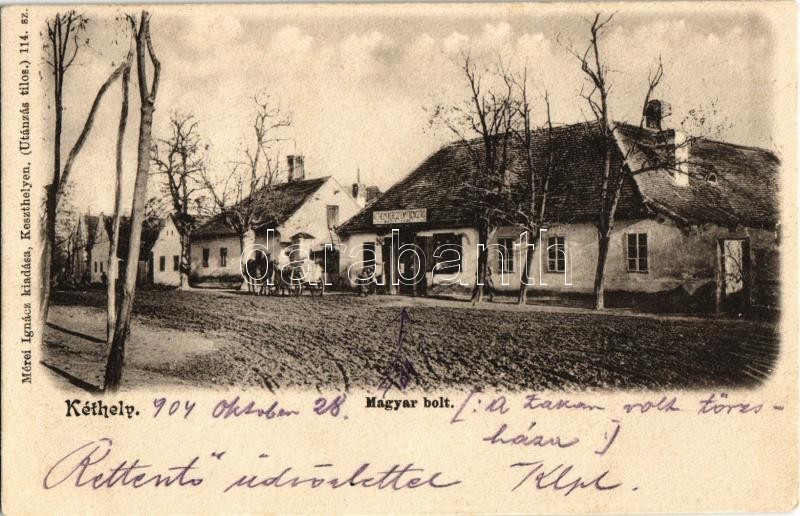 Mérei Ignácz kiadása, Keszthelyen. (Utánzás tilos.) 114. sz.
darabanth
Kéthely. 904 Oktober 28. Magyar bolt. (: a Zakan volt törzs-
háza :)
"Rettentő" üdvözlettel Klpl.